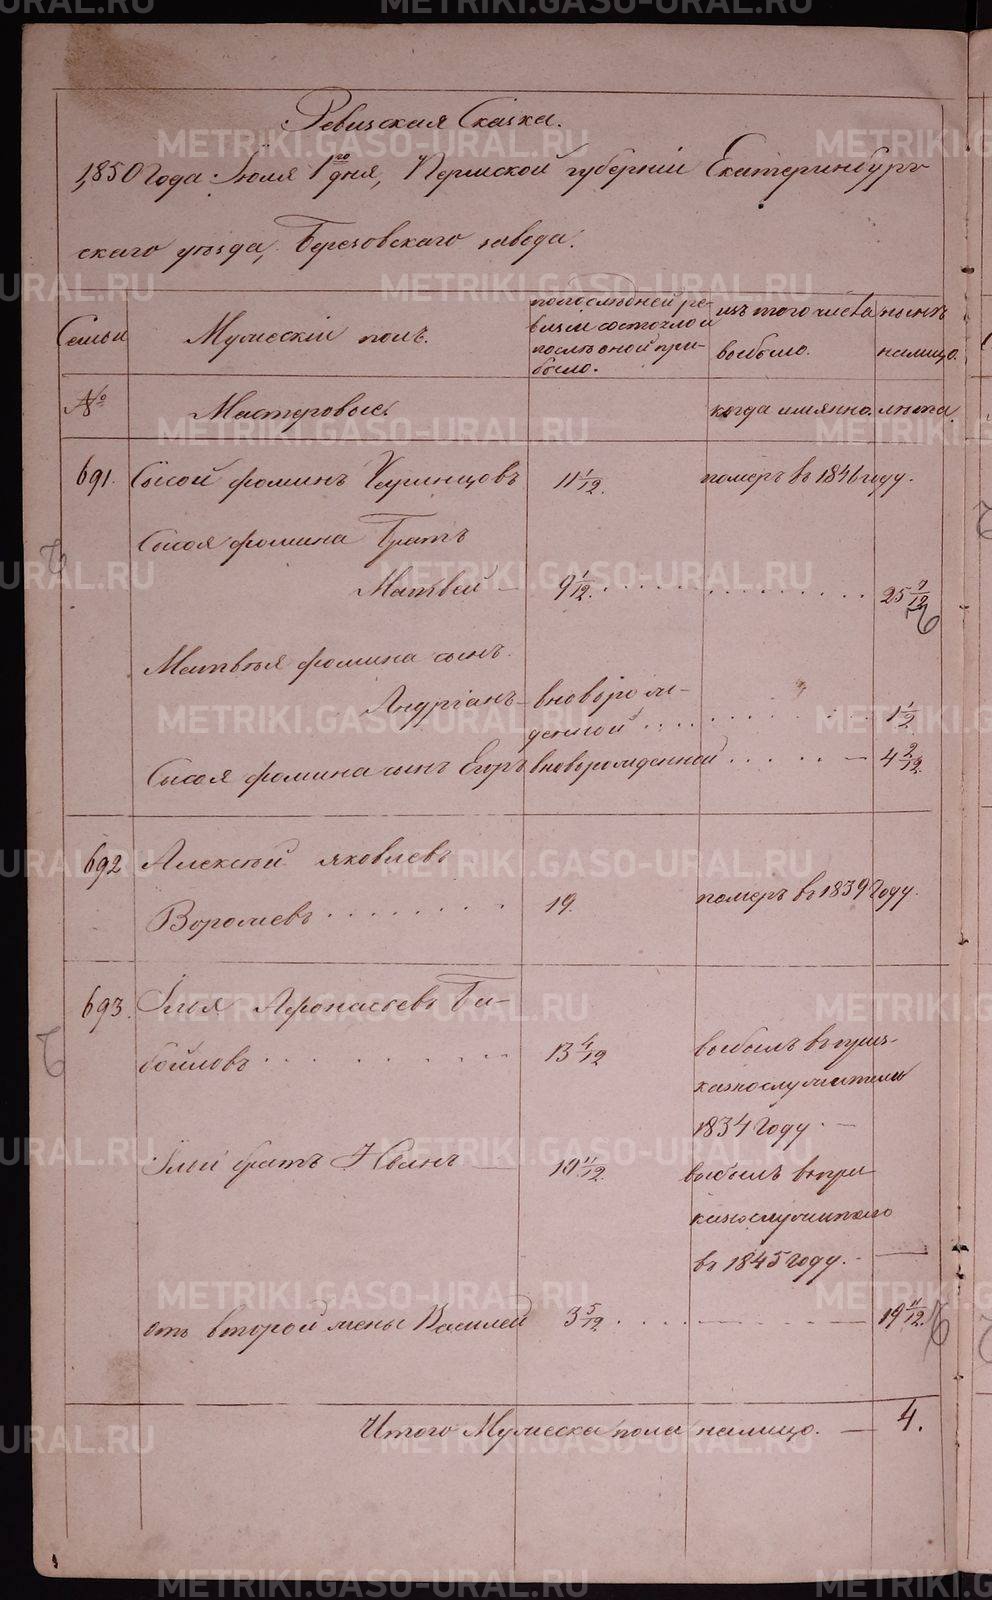 Ревизская Сказка.
1850 года Іюля 1го дня, Пермской губерніи Екатеринбург
скаго уѣзда, Березовскаго завода.
Семьи
Мужескій полъ.
по последней ре-
визіи состояло и
после оной при-
было.
изъ того числа
выбыло.
нынѣ
налицо.
№
Мастеровые.
когда имянно.
лѣта.
691. Сысой Фоминъ 11 1/12. померъ въ 1846 году.
Сысоя Фомина Братъ
Матвей 9 1/12. 25 7/12
Матвѣя Фомина сынъ
Андріанъ вноворож-
денной 1 1/2.
Сысоя Фомина сынъ Егоръ вноворожденной 4 2/12.
692 Алексѣй Яковлевъ
19. померъ въ 1839 году.
693. Илья Афонасьевъ Би-
бойловъ 13 4/12 выбылъ въ приз-
казнослужители
1834 году.
Ильи братъ Иванъ 19 11/12. выбылъ въ при
казнослужители
въ 1845 году.
отъ второй жены Василей 3 5/12 19 11/12.
Итого Мужеска пола налицо. 4.
METRIKI.GASO-URAL.RU